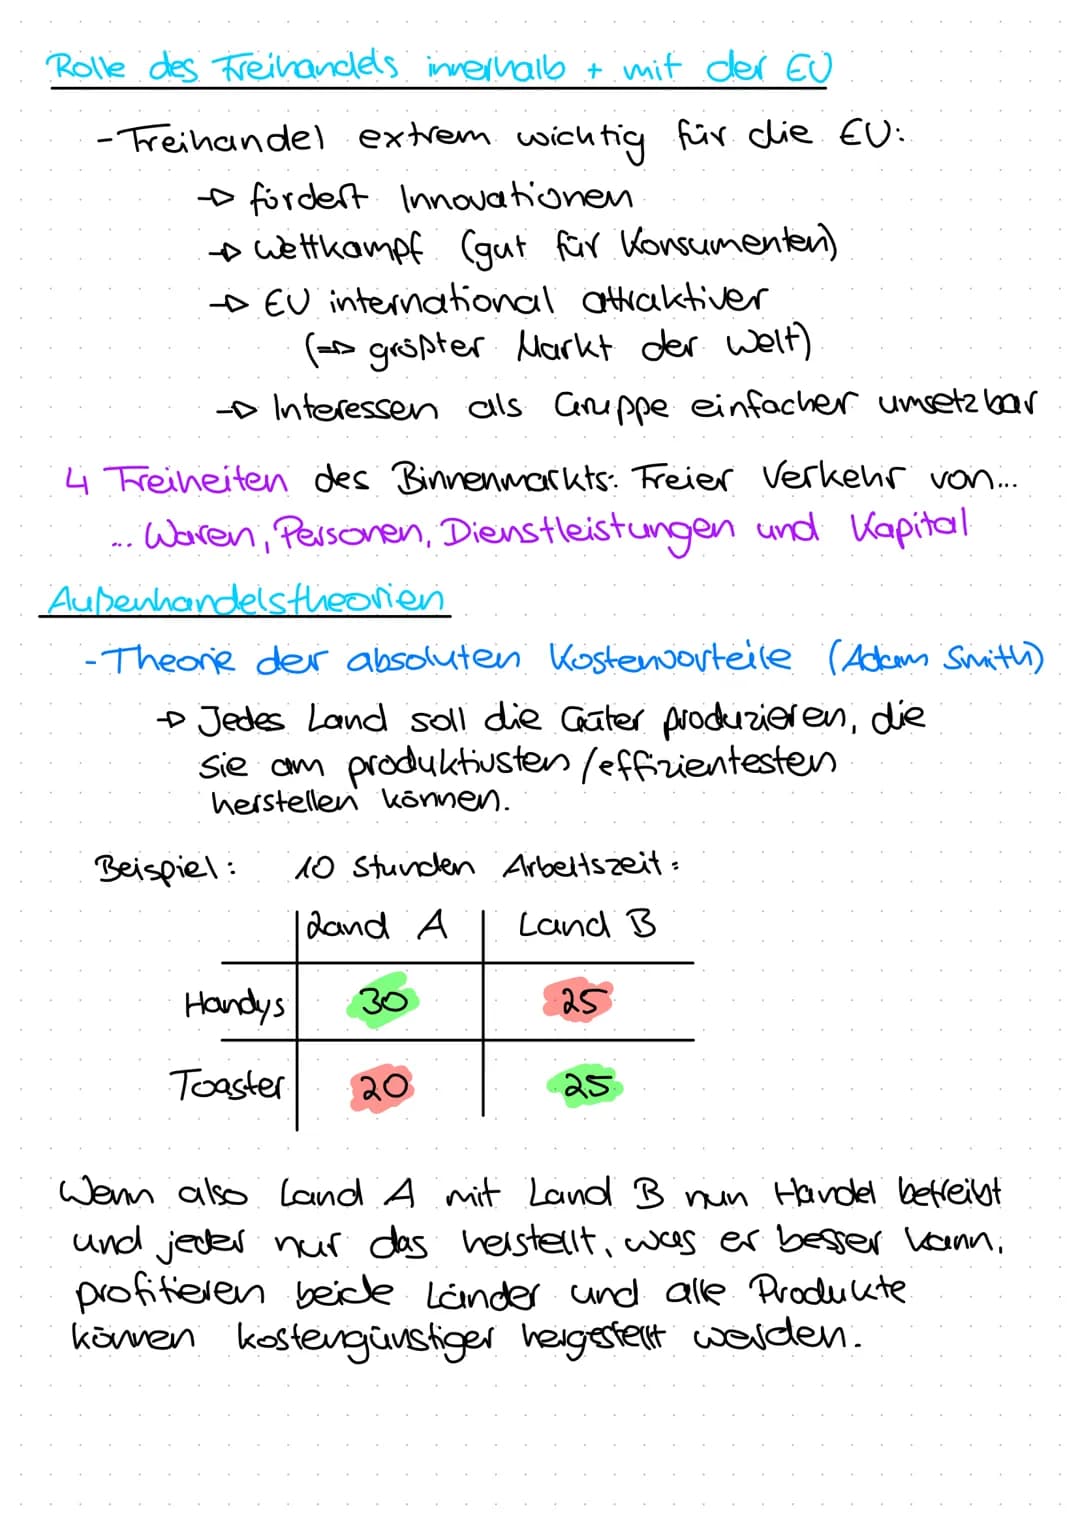 Rolle des Freihandels innerhalb + mit der EU
- Freihandel extrem wichtig für die EU:
→ fördert Innovationen
→ Wettkampf (gut für Konsumenten)
→ EU international attraktiver
(⇒ größter Markt der Welt)
→ Interessen als Gruppe einfacher umsetzbar
4 Freiheiten des Binnenmarkts: Freier Verkehr von...
... Waren, Personen, Dienstleistungen und Kapital
Außenhandelstheorien
- Theorie der absoluten Kostenvorteile (Adam Smith)
→ Jedes Land soll die Güter produzieren, die
sie am produktivsten/effizientesten
herstellen können.
Beispiel: 10 Stunden Arbeitszeit:
Land A Land B
Handys 30 25
Toaster 20 25
Wenn also Land A mit Land B nun Handel betreibt
und jeder nur das herstellt, was er besser kann,
profitieren beide Länder und alle Produkte
können kostengünstiger hergestellt werden.